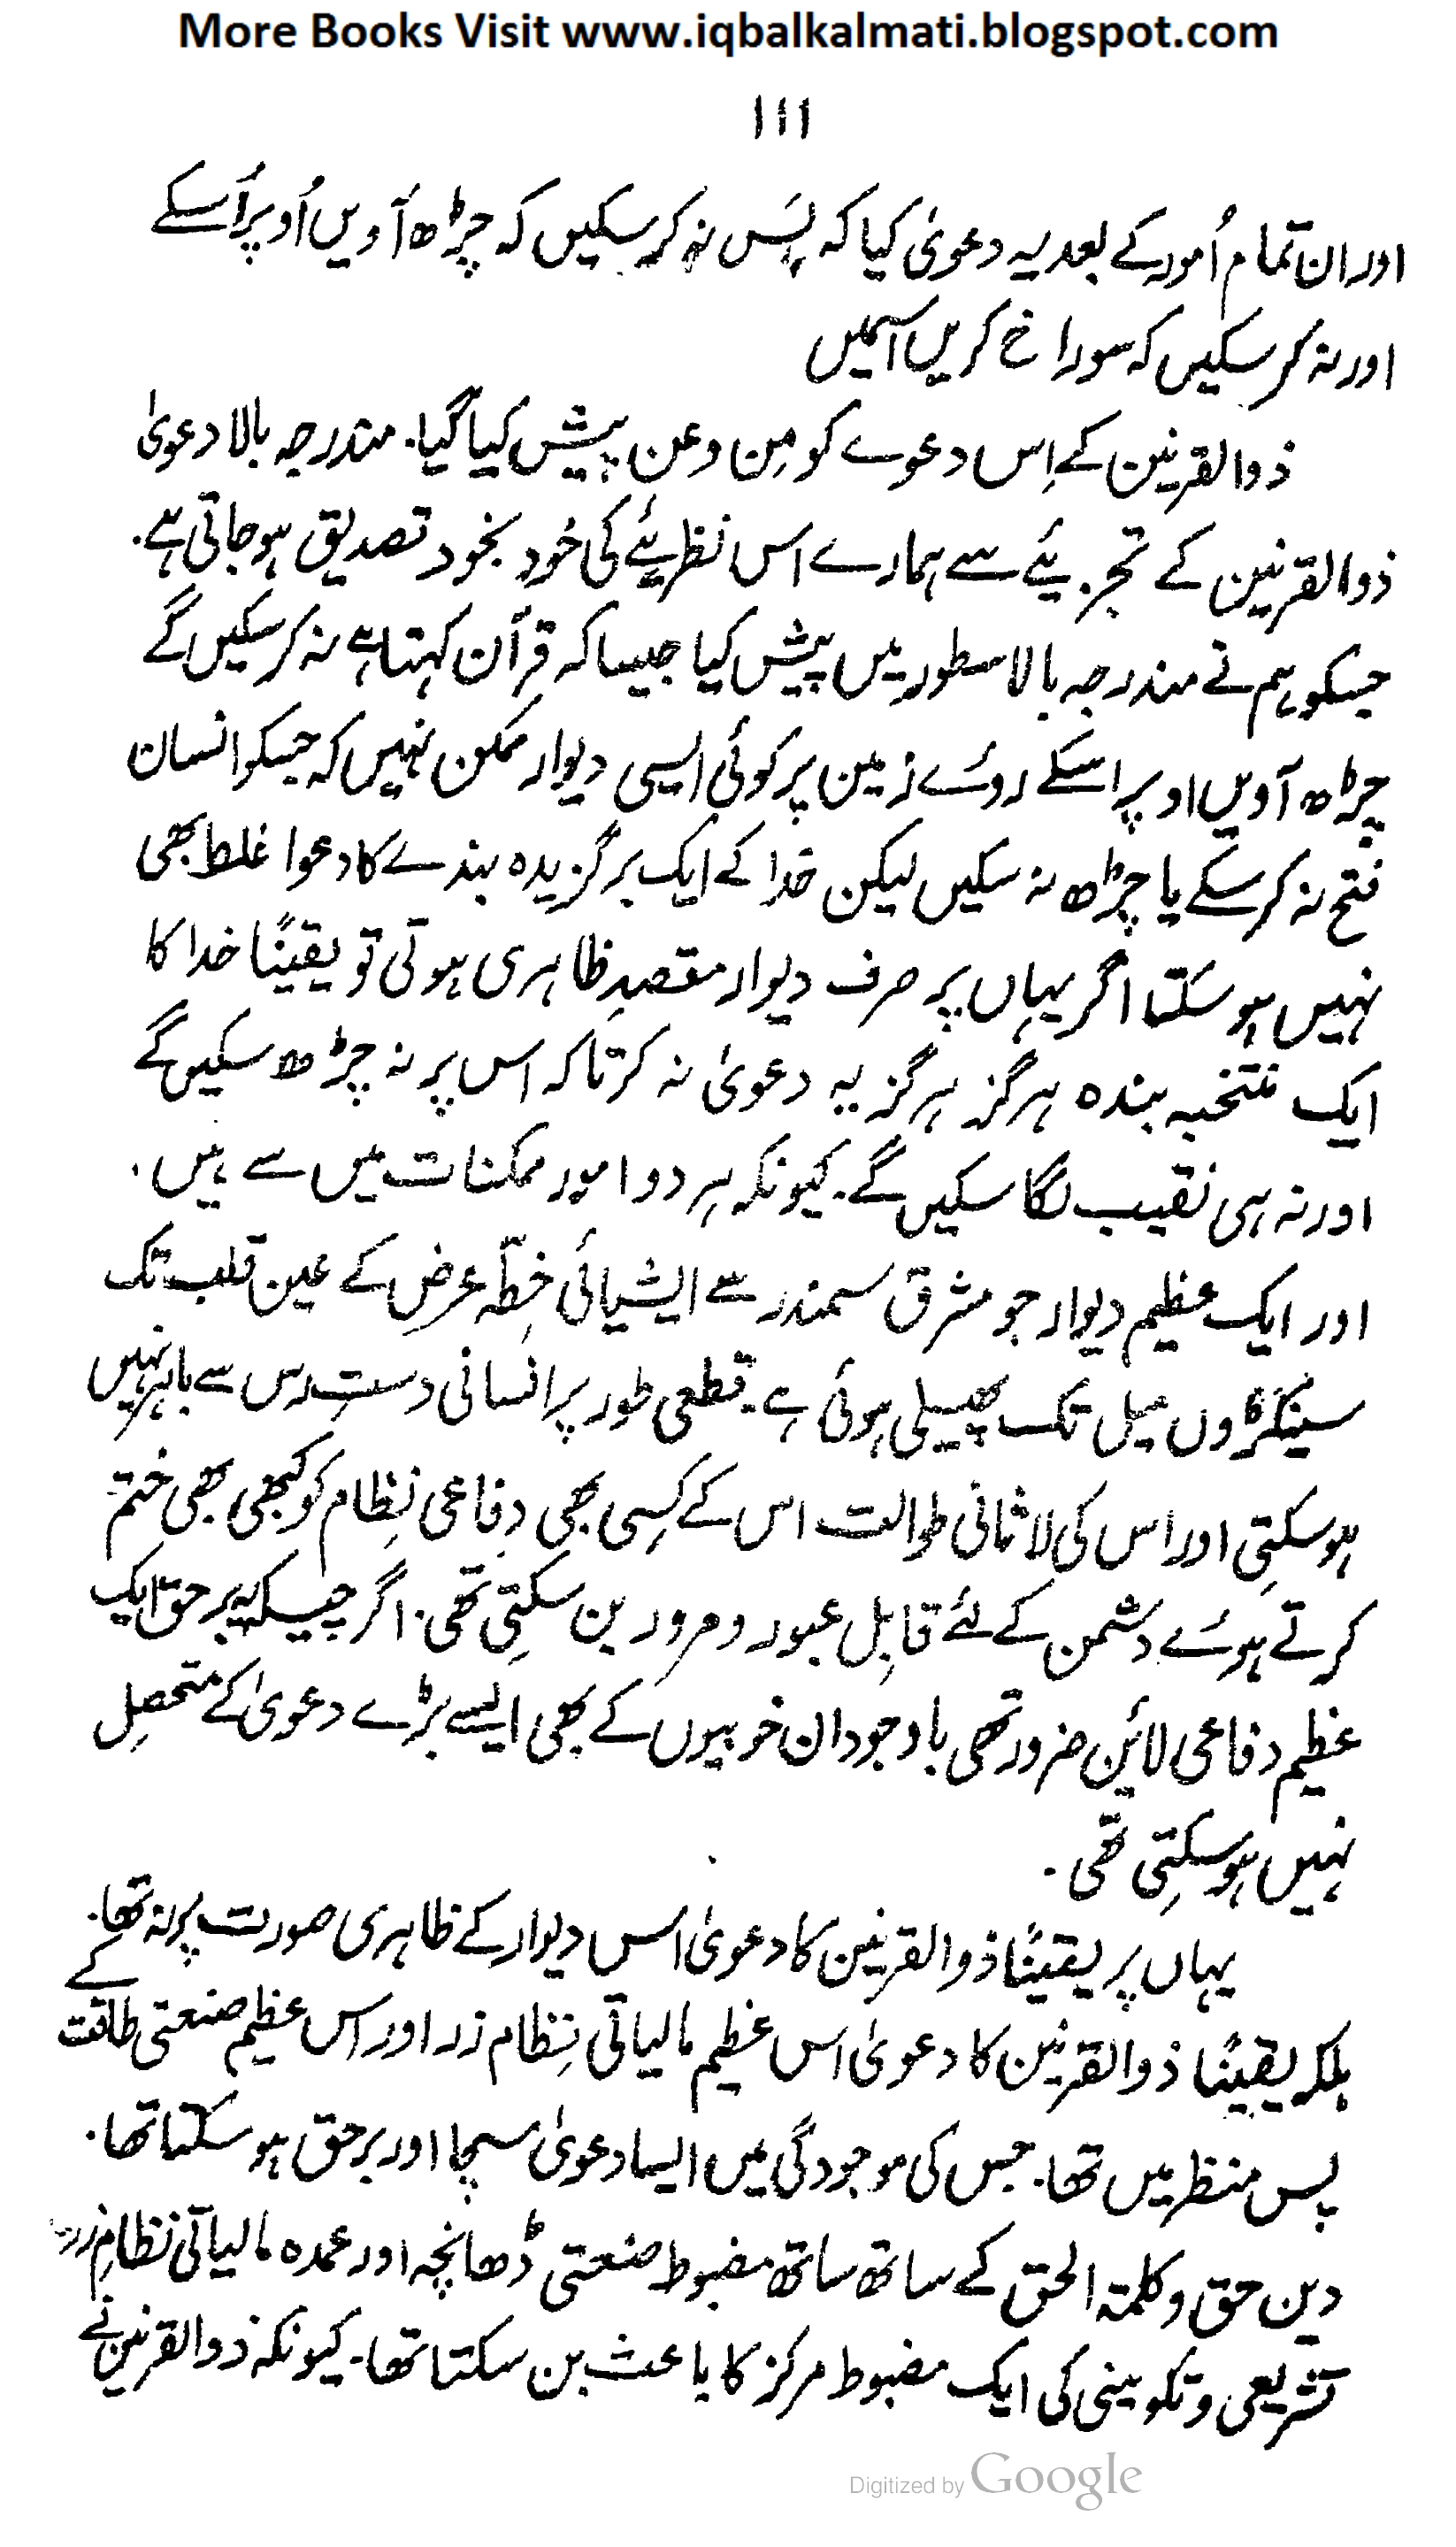 More Books Visit www.iqbalkalmati.blogspot.com
۱۱۱
اور ان تمام اُمور کے بعد یہ دعویٰ کیا کہ پَس نہ کر سکیں کہ چڑھ آویں اُوپر اُسکے
اور نہ کر سکیں کہ سوراخ کریں اسمیں
ذوالقرنین کے اِس دعوے کو مِن و عن پیش کیا گیا۔ مندرجہ بالا دعویٰ
ذوالقرنین کے تجزیئے سے ہمارے اس نظریئے کی خُود بخود تصدیق ہو جاتی ہے۔
جسکو ہم نے مندرجہ بالا سطور میں پیش کیا جیسا کہ قرآن کہتا ہے نہ کر سکیں گے
چڑھ آویں اوپر اسکے روئے زمین پر کوئی ایسی دیوار ممکن نہیں کہ جسکو انسان
فتح نہ کر سکے یا چڑھ نہ سکیں لیکن خدا کے ایک برگزیدہ بندے کا دعوا غلط بھی
نہیں ہو سکتا اگر یہاں پر صرف دیوار مقصدِ ظاہری ہوتی تو یقیناً خدا کا
ایک منتخبہ بندہ ہرگز ہرگز یہ دعویٰ نہ کرتا کہ اس پر نہ چڑھ سکیں گے
اور نہ ہی نقیب لگا سکیں گے۔ کیونکہ ہر دو امور ممکنات میں سے ہیں۔
اور ایک عظیم دیوار جو مشرق سمندر سے ایشیائی خِطّہ عرض کے عین قلب تک
سینکڑوں میل تک پھیلی ہوئی ہے۔ قطعی طور پر انسانی دستِ رس سے باہر نہیں
ہو سکتِی اور اس کی لاثانی طوالت اس کے کِسی بھی دفاعی نِظام کو کبھی بھی ختم
کرتے ہوئے دشمن کے لئے قابِل عبور و مرور بن سکتِی تھی۔ اگر چیکہ یہ بر حق ایک
عظیم دفاعی لائن ضرور تھی باوجود ان خوبیوں کے بھی ایسے بڑے دعویٰ کے متحصِل
نہیں ہو سکتِی تھی۔
یہاں پر یقیناً ذوالقرنین کا دعویٰ اس دیوار کے ظاہری صورت پر نہ تھا۔
بلکہ یقیناً ذوالقرنین کا دعویٰ اس عظیم مالیاتی نِظام زر اور اس عظیم صنعتی طاقت کے
پس منظر میں تھا۔ جس کی موجودگی میں ایسا دعویٰ سچا اور بر حق ہو سکتا تھا۔
دین حق و کلمتہ الحق کے ساتھ ساتھ مضبوط صنعتی ڈھانچہ اور عمدہ مالیاتی نظامِ زر
تشریعی و تکوینی کی ایک مضبوط مرکز کا باعث بن سکتا تھا۔ کیونکہ ذوالقرنین نے
Digitized by Google